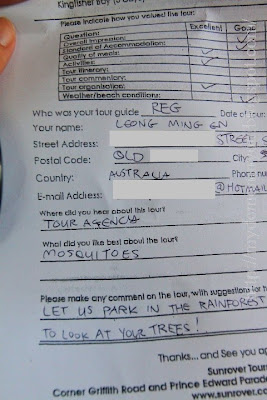 Kingfisher Bay
Please indicate how you valued the tour:
Question: Excellent Good
Overall impression:
Standard of Accommodation:
Quality of meals:
Activities:
Tour Itinerary:
Tour commentary:
Tour organisation:
Weather/beach condition:
Who was your tour guide REG Date of tour:
Your name: LEONG MING EN
Street Address: STREET, S
Postal Code: QLD City:
Country: AUSTRALIA Phone
E-mail Address: @HOTMAIL
Where did you hear about this tour?
TOUR AGENCY
What did you like best about the tour?
MOSQUITOES
Please make any comment on the tour, with suggestions for
LET US PARK IN THE RAINFOREST
TO LOOK AT YOUR TREES!
Thanks... and See you ag
Sunrover Tour
Corner Griffith Road and Prince Edward Parade
www.sunrover.com